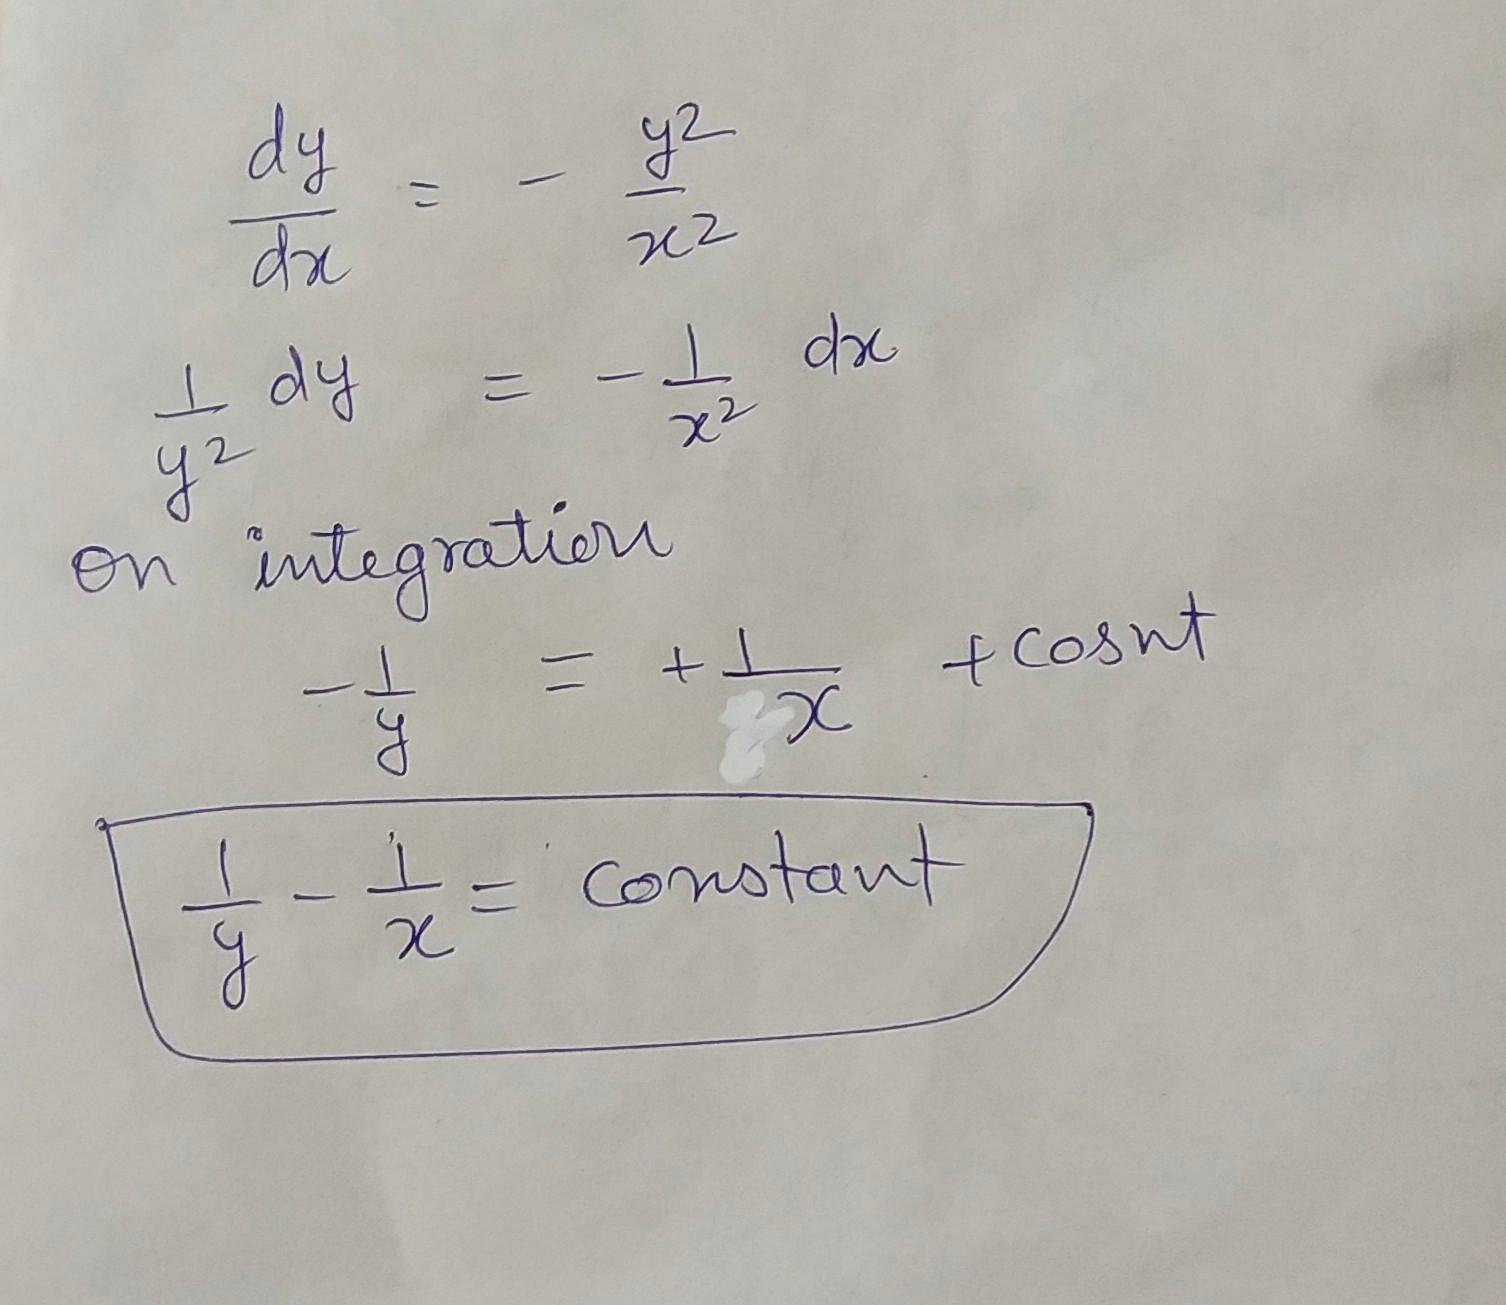 dy/dx = - y²/x²
1/y² dy = - 1/x² dx
on integration
- 1/y = + 1/x + cosnt
1/y - 1/x = constant